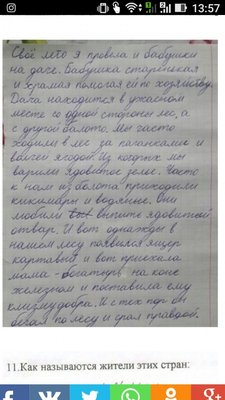 13:57
Своё лето я провела и бабушки
на даче. Бабушка старенькая
и хромая помогая ей по хозяйству.
Дача находится в ужасном
месте со одной стороны лес, а
с другой болото. Мы часто
ходили в лес за поганками и
волчей ягодой из которых мы
варили ядовитое зелье. Часто
к нам из болота приходили
кикиморы и водяные. Они
любили выпить ядовитой
отвар. И вот однажды в
нашем лесу появился ящер
картавый и вот приехала
мама - богатырь на коне
железном и поставила ему
клизму добра. И с тех пор он
бегал по лесу и срал правдой.
11.Как называются жители этих стран: